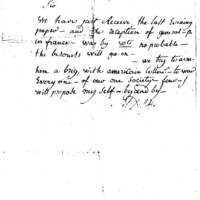 Sir
We have just receive the last Evening
paper - and the reception of general
in france - way by vote no probable -
the besonets will go on -
- we try to arm
here a brig, with american Colors - to
Every one - of our one Society -
will propose my self -